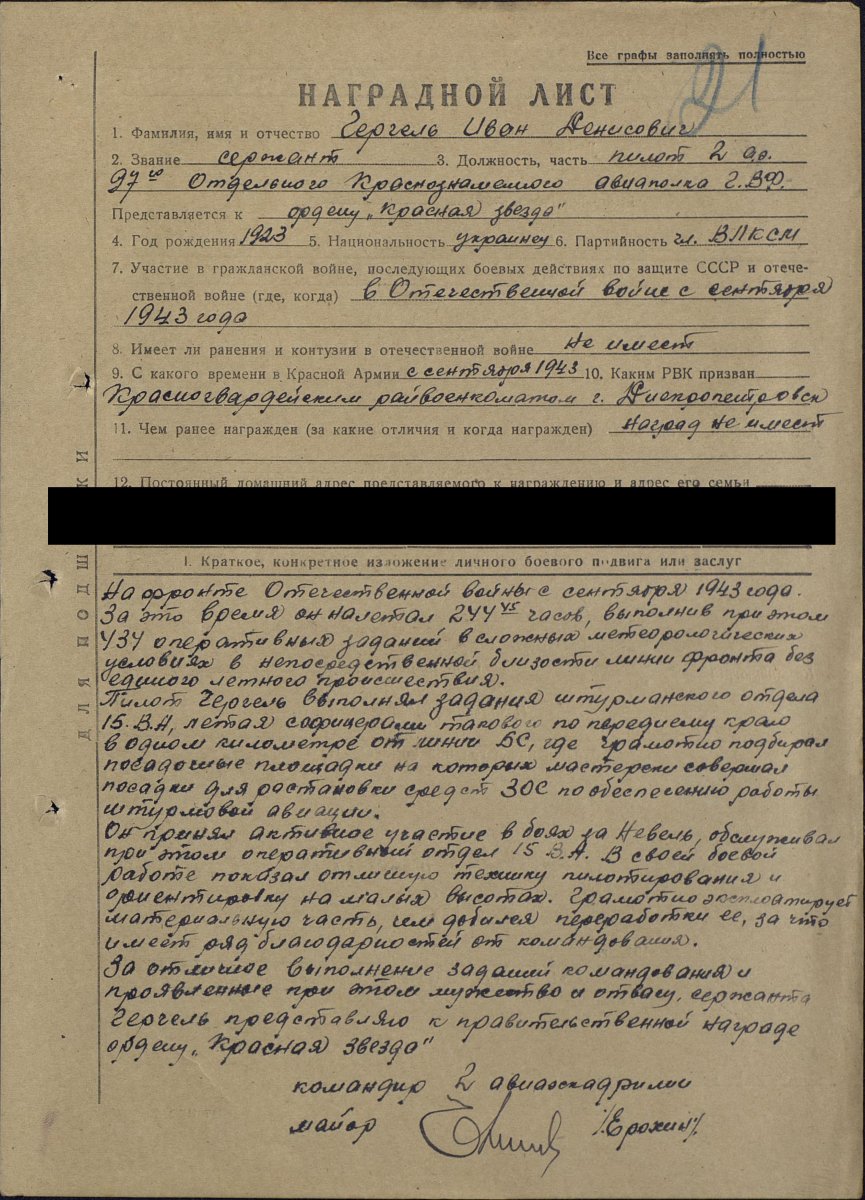 Все графы заполнять полностью
21
НАГРАДНОЙ ЛИСТ
1. Фамилия, имя и отчество Чергель Иван Денисович
2. Звание сержант 3. Должность, часть пилот 2 а.э.
97го Отдельного Краснознаменного авиаполка Г.ВФ.
Представляется к ордену „Красная звезда"
4. Год рождения 1923 5. Национальность украинец 6. Партийность чл. ВЛКСМ
7. Участие в гражданской войне, последующих боевых действиях по защите СССР и отече-
ственной войне (где, когда) в Отечественной войне с сентября
1943 года
8. Имеет ли ранения и контузии в отечественной войне не имеет
9. С какого времени в Красной Армии с сентября 1943 10. Каким РВК призван
Красногвардейским райвоенкоматом г. Днепропетровск
11. Чем ранее награжден (за какие отличия и когда награжден) наград не имеет
12. Постоянный домашний адрес представляемого к награждению и адрес его семьи
ДЛЯ ПОДШИВКИ
I. Краткое, конкретное изложение личного боевого подвига или заслуг
На фронте Отечественной войны с сентября 1943 года.
За это время он налетал 244 45 часов, выполнив при этом
434 оперативных заданий в сложных метеорологических
условиях в непосредственной близости линии фронта без
единого летного происшествия.
Пилот Чергель выполнял задания штурманского отдела
15. В.А, летая с офицерами такового по переднему краю
в одном километре от линии БС, где грамотно подбирал
посадочные площадки на которых мастерски совершал
посадки для растановки средст ЗОС по обеспечению работы
штурмовой авиации.
Он принял активное участие в боях за Невель, обслуживал
при этом оперативный отдел 15 В.А. В своей боевой
работе показал отличную технику пилотирования и
ориентировку на малых высотах. Грамотно эксплоатирует
материальную часть, чем добился переработки ее, за что
имеет ряд благодарностей от командования.
За отличное выполнение заданий командования и
проявленные при этом мужество и отвагу, сержанта
Чергель представляю к правительственной награде
ордену „Красная звезда"
командир 2 авиаэскадрилии
майор /Ерохин/